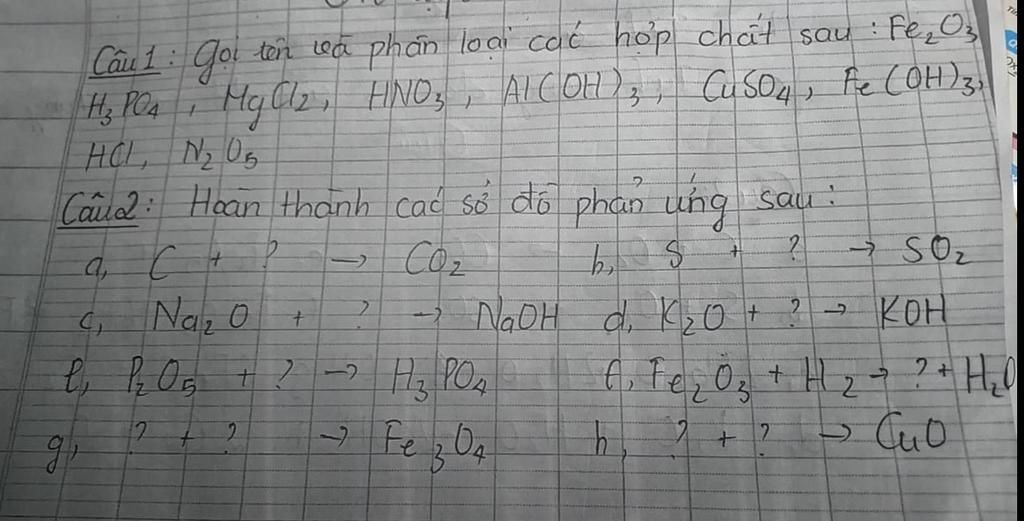 Câu 1: Gọi tên và phân loại các hợp chất sau: Fe₂O₃
H₃PO₄, MgCl₂, HNO₃, Al(OH)₃, CuSO₄, Fe(OH)₃,
HCl, N₂O₅
Câu 2: Hoàn thành các sơ đồ phản ứng sau:
a, C + ? → CO₂ b, S + ? → SO₂
c, Na₂O + ? → NaOH d, K₂O + ? → KOH
e, P₂O₅ + ? → H₃PO₄ f, Fe₂O₃ + H₂ → ? + H₂O
g, ? + ? → Fe₃O₄ h, ? + ? → CuO